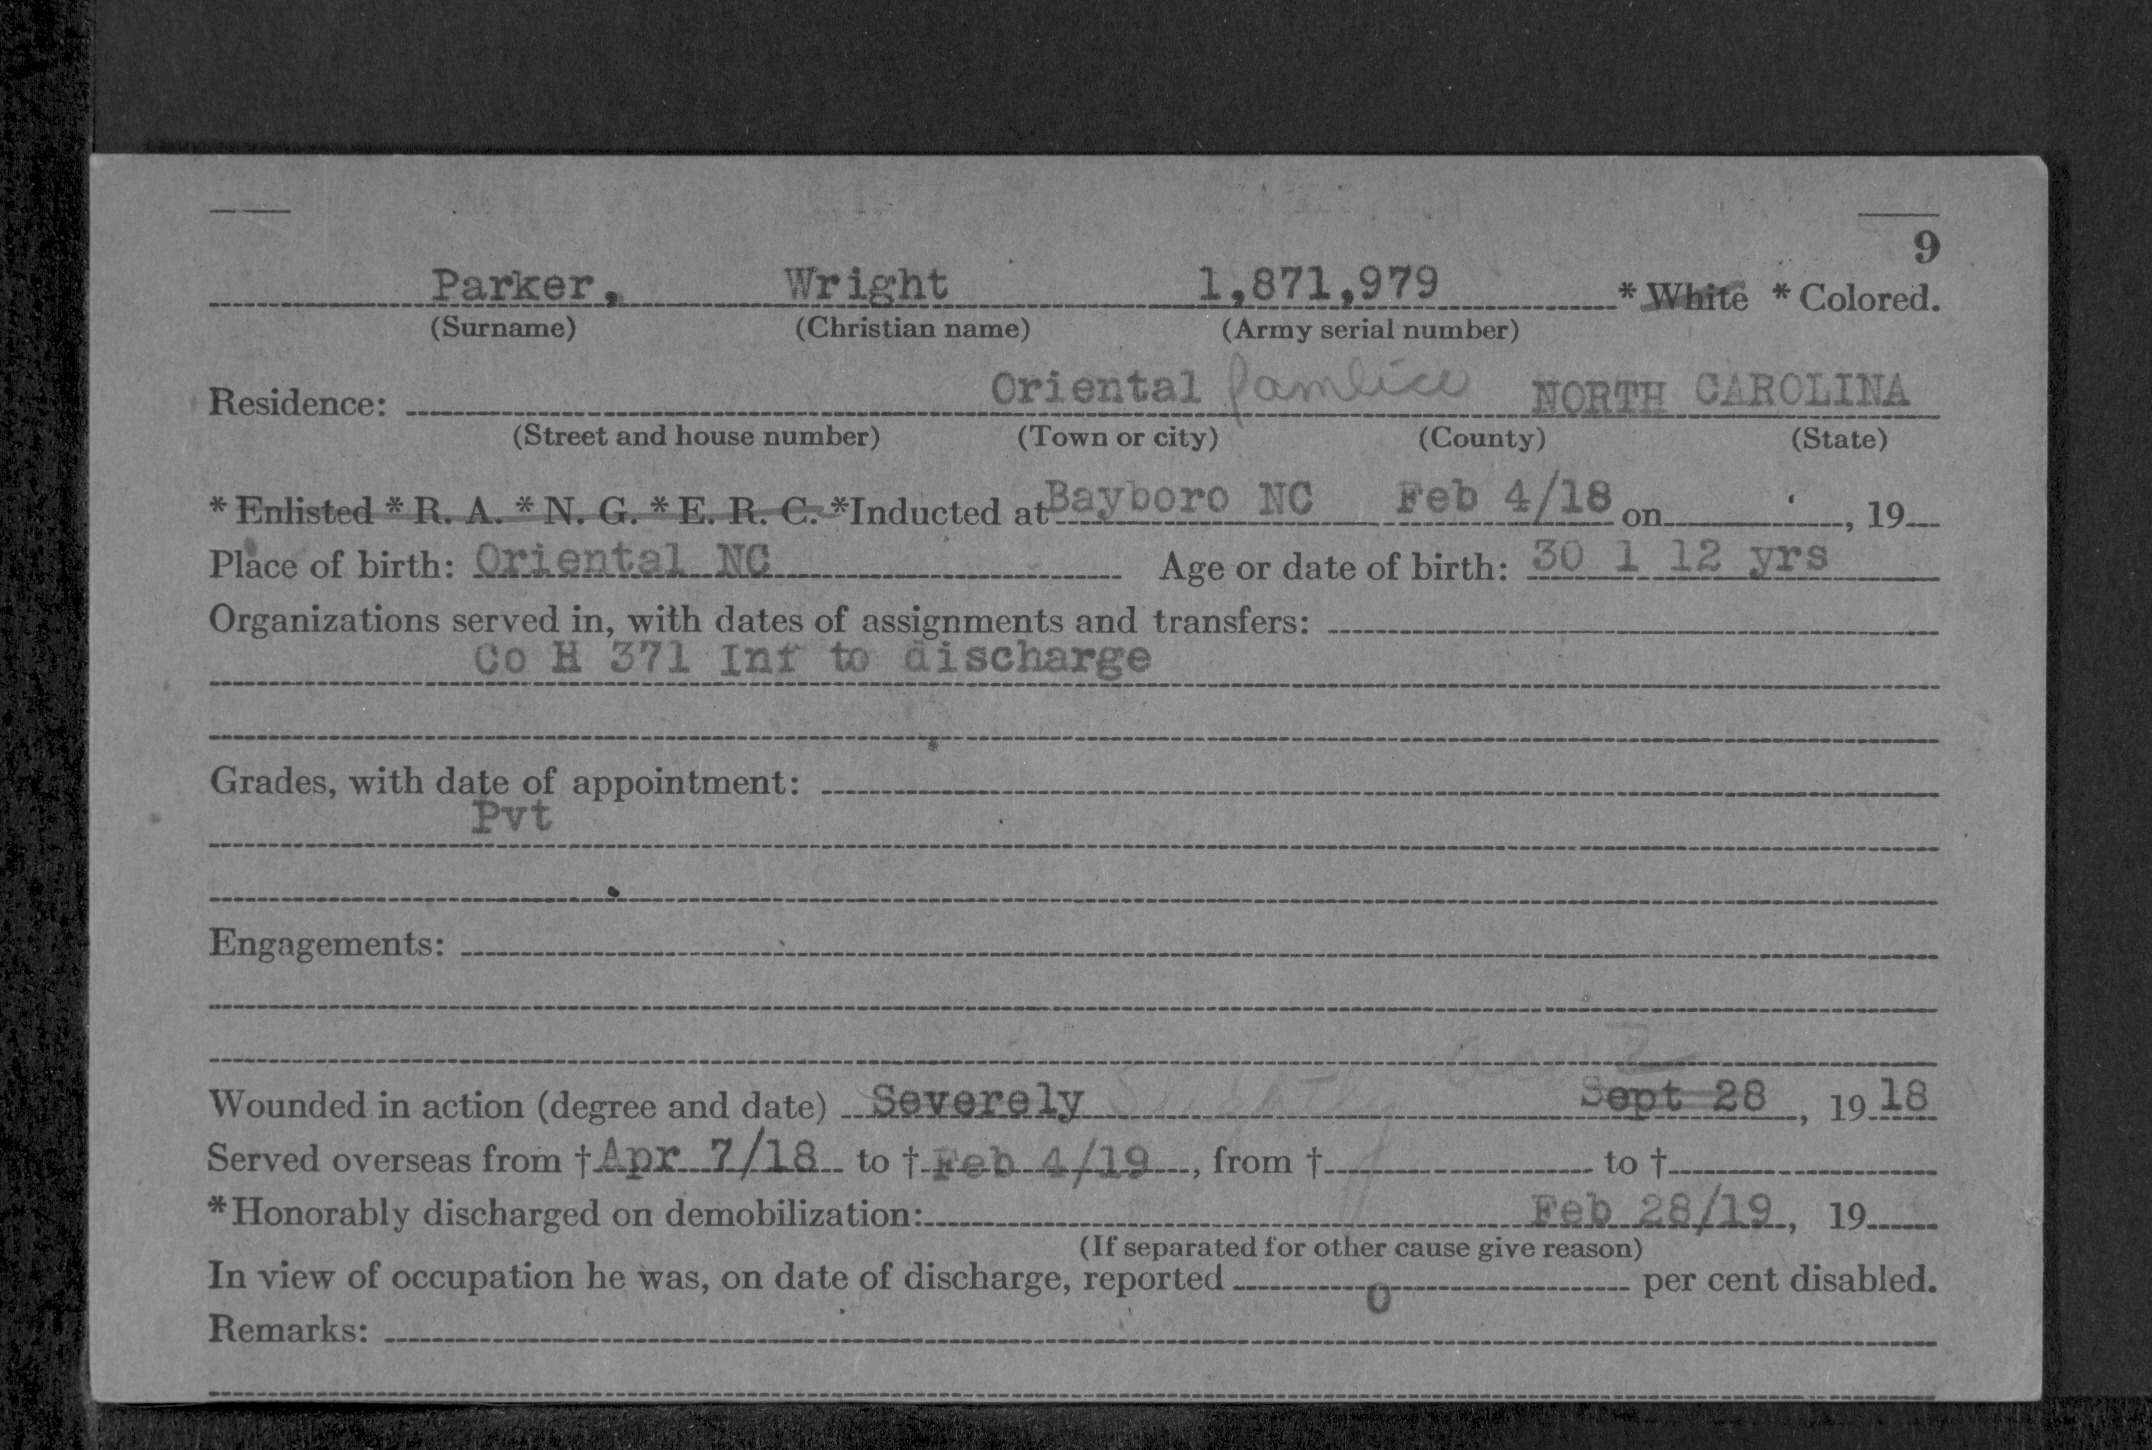 9
Parker, Wright 1,871,979 * White * Colored.
(Surname) (Christian name) (Army serial number)
Residence: Oriental Pamlico NORTH CAROLINA
(Street and house number) (Town or city) (County) (State)
* Enlisted * R. A. * N. G. * E. R. C. *Inducted at Bayboro NC Feb 4/18 on , 19
Place of birth: Oriental NC Age or date of birth: 30 1 12 yrs
Organizations served in, with dates of assignments and transfers:
Co H 371 Inf to discharge
Grades, with date of appointment:
Pvt
Engagements:
Wounded in action (degree and date) Severely Slightly Sept 28, 19 18
Served overseas from † Apr 7/18 to † Feb 4/19, from † to †
*Honorably discharged on demobilization: Feb 28/19, 19
(If separated for other cause give reason)
In view of occupation he was, on date of discharge, reported 0 per cent disabled.
Remarks: